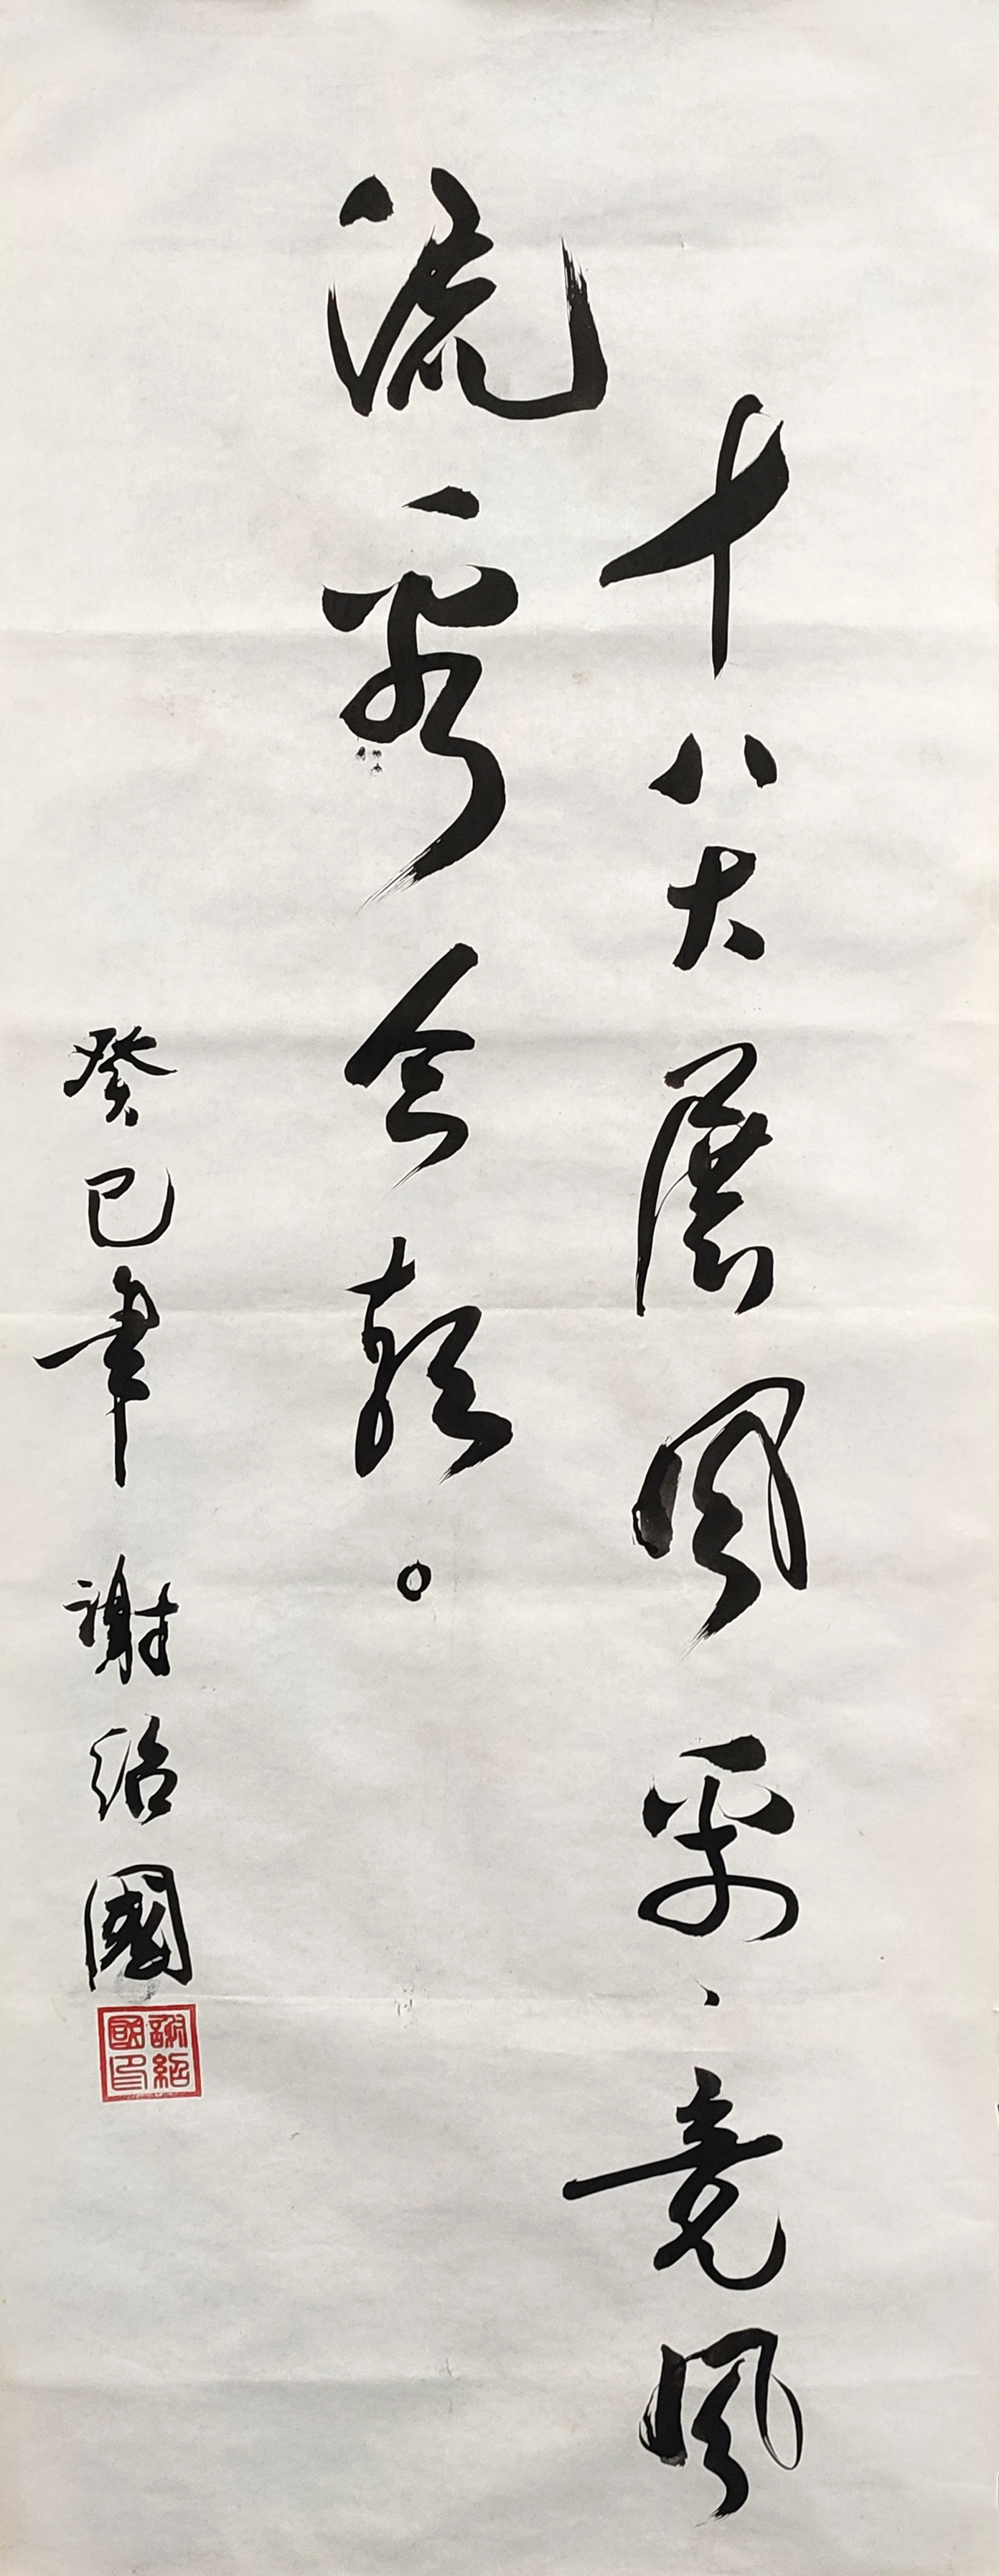 十八大展風采、竞風
流看今朝。
癸巳年 謝紹國
謝紹國印